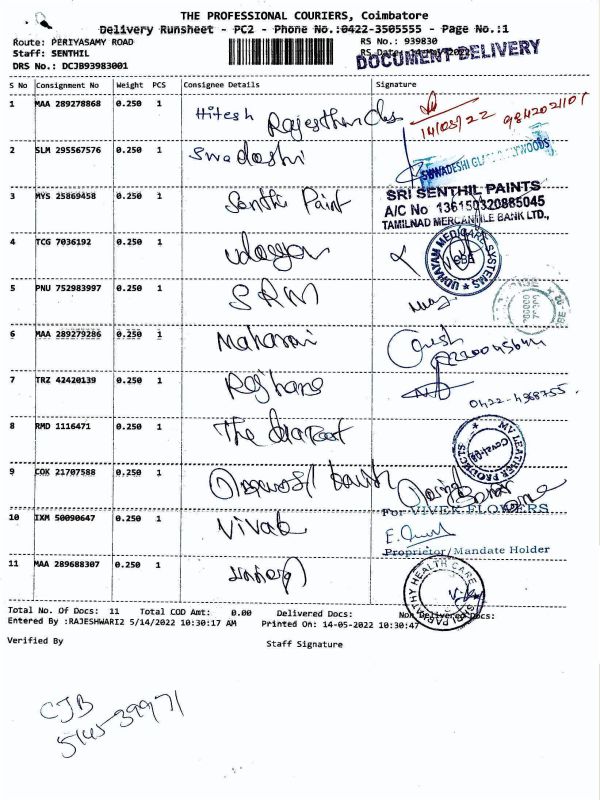 THE PROFESSIONAL COURIERS, Coimbatore
Delivery Runsheet - PC2 - Phone No.:0422-3505555 - Page No.:1
Route: PERIYASAMY ROAD
RS No.: 939830
Staff: SENTHIL
RS Date: 14-May-2022
DOCUMENT DELIVERY
DRS No.: DCJB93983001
S No Consignment No Weight PCS Consignee Details Signature
1 MAA 289278868 0.250 1 Hitesh
14/05/22 9842021101
2 SLM 295567576 0.250 1 Swadeshi
3 MYS 25869458 0.250 1 Senthi Paint
SRI SENTHIL PAINTS
A/C No 136150320885045
TAMILNAD MERCANTILE BANK LTD.,
4 TCG 7036192 0.250 1
UDHAYAM MEDICARE SYSTEMS
5 PNU 752983997 0.250 1 SRM
6 MAA 289279286 0.250 1
7 TRZ 42420139 0.250 1 Rajhans
0422-4368755.
8 RMD 1116471 0.250 1 The
MV LEATHER PRODUCTS
9 COK 21707588 0.250 1
For VIVEK FLOWERS
10 IXM 50090647 0.250 1 Vivak
Proprietor/Mandate Holder
11 MAA 289688307 0.250 1
SHRI PARVATHY HEALTH CARE
Total No. Of Docs: 11 Total COD Amt: 0.00 Delivered Docs: Non Delivered Docs:
Entered By :RAJESHWARI2 5/14/2022 10:30:17 AM Printed On: 14-05-2022 10:30:47
Verified By Staff Signature
CJB
5145-39971